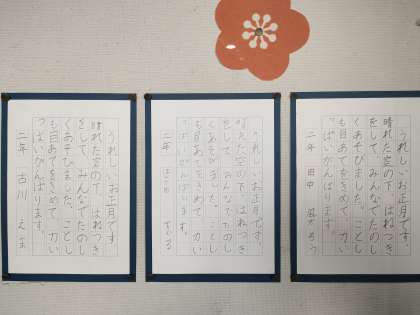 うれしいお正月です。
晴れた空の下、はねつき
をして、みんなでたのし
くあそびました。ことし
も目あてをきめて、力い
っぱいがんばります。
二年 古川 えま
うれしいお正月です。
晴れた空の下、はねつき
をして、みんなでたのし
くあそびました。ことし
も目あてをきめて、力い
っぱいがんばります。
二年
うれしいお正月です。
晴れた空の下、はねつき
をして、みんなでたのし
くあそびました。ことし
も目あてをきめて、力い
っぱいがんばります。
二年 田中